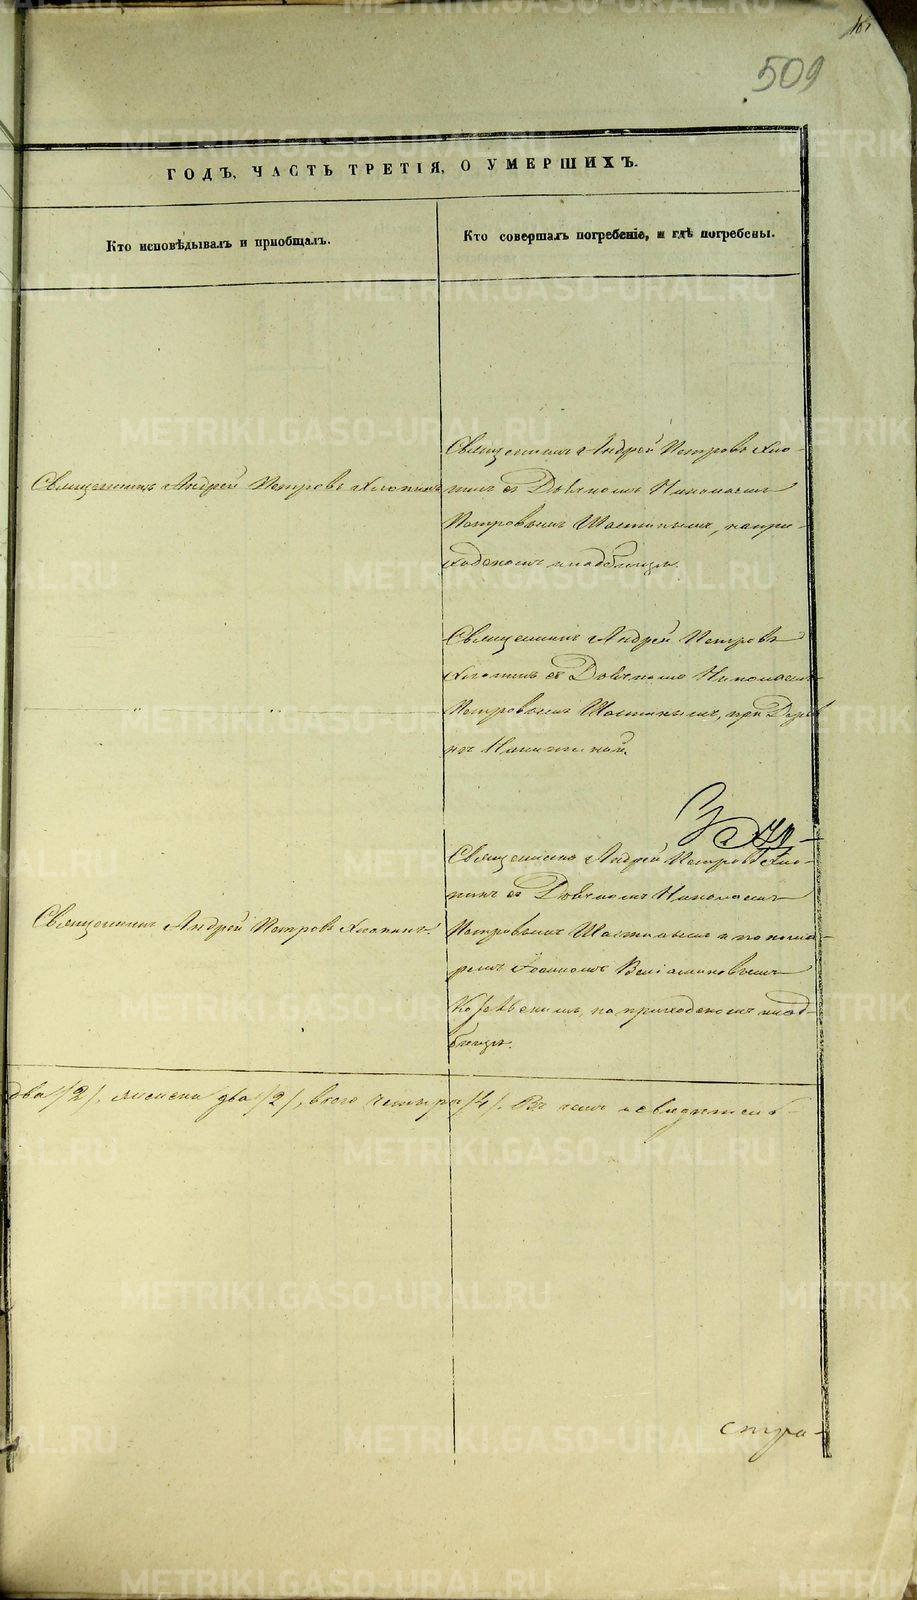 509
ГОДЪ, ЧАСТЬ ТРЕТІЯ, О УМЕРШИХЪ.
Кто исповѣдывалъ и пріобщалъ.
Кто совершалъ погребеніе, и гдѣ погребены.
Священникъ Андрей Петровъ Хлопинъ
Священникъ Андрей Петровъ Хло-
пинъ съ Дьячкомъ Николаемъ
Петровымъ Шастинымъ, на при-
ходскомъ кладбищѣ.
Священникъ Андрей Петровъ
Хлопинъ съ Дьячкомъ Николаемъ
Петровымъ Шастинымъ, при Дерев
нѣ
Священникъ Андрей Петровъ Хлопинъ.
Священникъ Андрей Петровъ Хло-
пинъ съ Дьячкомъ Николаемъ
Петровымъ Шастинымъ и понома-
ремъ Іоанномъ Веніаминовымъ
на приходскомъ клад-
бищѣ.
два /2/, женска два /2/, всего четыре /4/. Въ чемъ и свидетельс-
METRIKI.GASO-URAL.RU